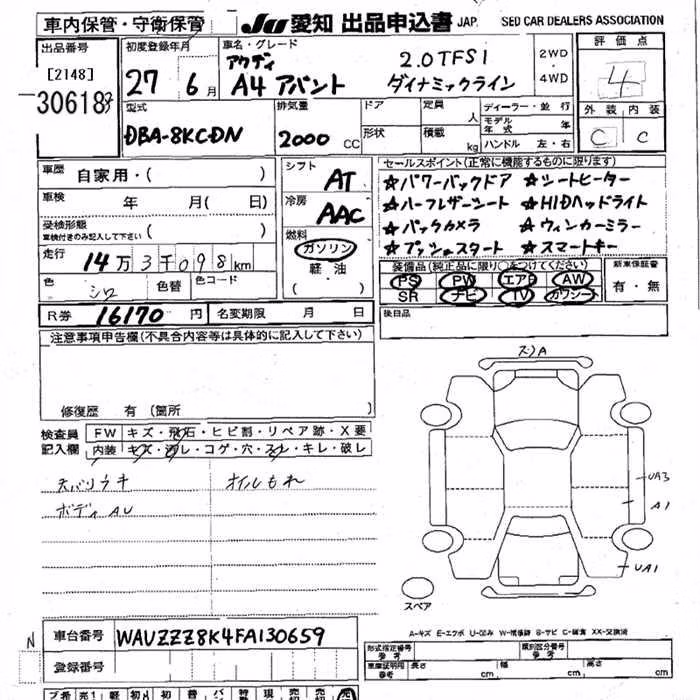 車内保管・守衛保管 JU 愛知 出品申込書 JAP. SED CAR DEALERS ASSOCIATION
出品番号 初度登録年月 車名・グレード 2WD・4WD 評価点
[2148] 27 6月 アウディ A4 アバント 2.0TFSI ダイナミックライン 4
30618 外装 内装
型式 排気量 ドア 定員 人 ディーラー・並行 C C
DBA-8KCDN 2000 CC 形状 積載 kg モデル年式 年 ハンドル 左・右
車歴 自家用・( ) シフト AT セールスポイント(正常に機能するものに限ります)
車検 年 月( 日) 冷房 AAC ☆パワーバックドア ☆シートヒーター
受検形態 ( ) ☆ハーフレザーシート ☆HIDヘッドライト
車検付きのみ記入して下さい 燃料 ☆バックカメラ ☆ウィンカーミラー
走行 14万3千098km ガソリン ☆プッシュスタート ☆スマートキー
色 シロ 色替 色コード 軽・油 ( ) 装備品(純正品に限り○をつけてください) 新車保証書
PS PW エアB AW 有・無
SR ナビ TV カワシート
R券 16170 円 名変期限 月 日 後日品
注意事項申告欄(不具合内容等は具体的に記入して下さい)
修復歴 有 (箇所 )
検査員記入欄 FW キズ・飛石・ヒビ割・リペア跡・X要
内装 キズ・汚レ・コゲ・穴・スレ・キレ・破レ
天バリウキ オイルもれ
ボディAU
スリA
UA3
A1
UA1
スペア
A-キズ E-エクボ U-凹み W-補修跡 S-サビ C-腐食 XX-交換済
N 車台番号 WAUZZZ8K4FA130659
登録番号
形式指定番号 参考 類別区分番号 参考
車庫証明用 参考 長さ cm 幅 cm 高さ cm